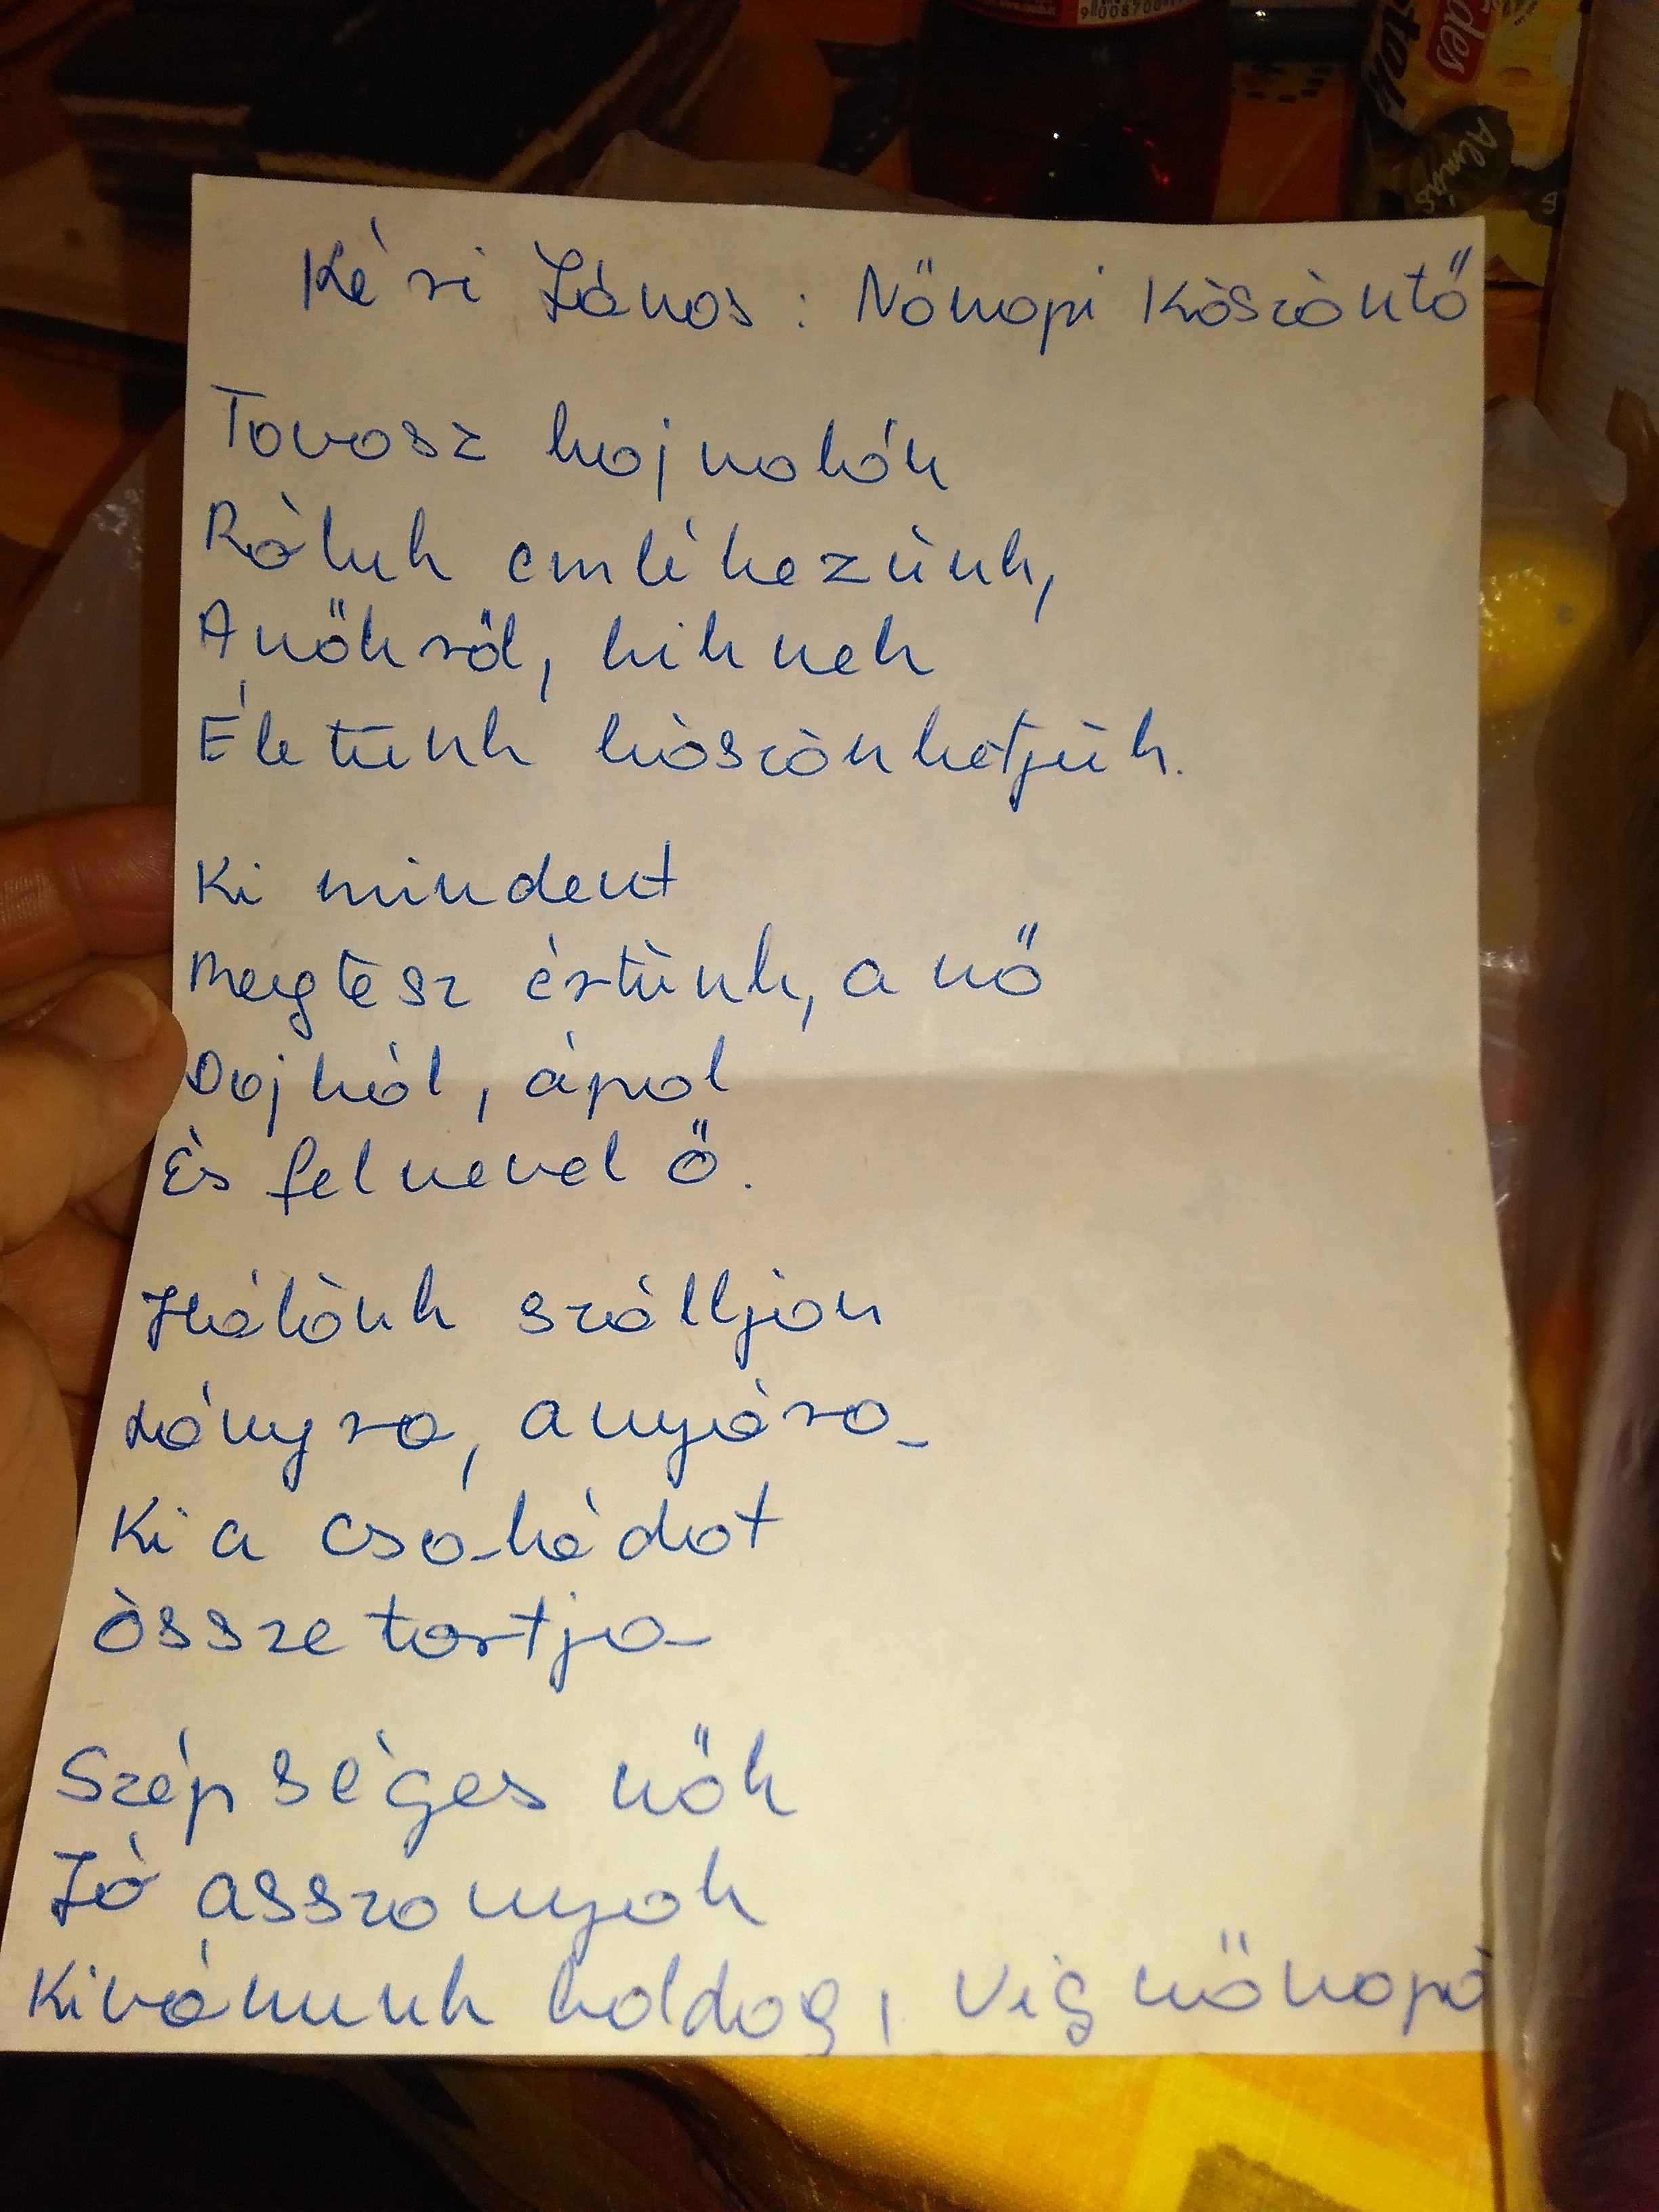 9008700
des
Almás
Kéri János: Nőnapi Köszöntő
Tavasz hajnalán
Róluk emlékezünk,
A nőkről, kiknek
Életünk köszönhetjük.
Ki mindent
Megtesz értünk, a nő
Dajkál, ápol
És felnevel ő.
Hálánk szálljon
Lányra, anyára
Ki a családot
összetartja
Szépséges nők
Jó asszonyok
Kivánunk boldog, víg nőnapo